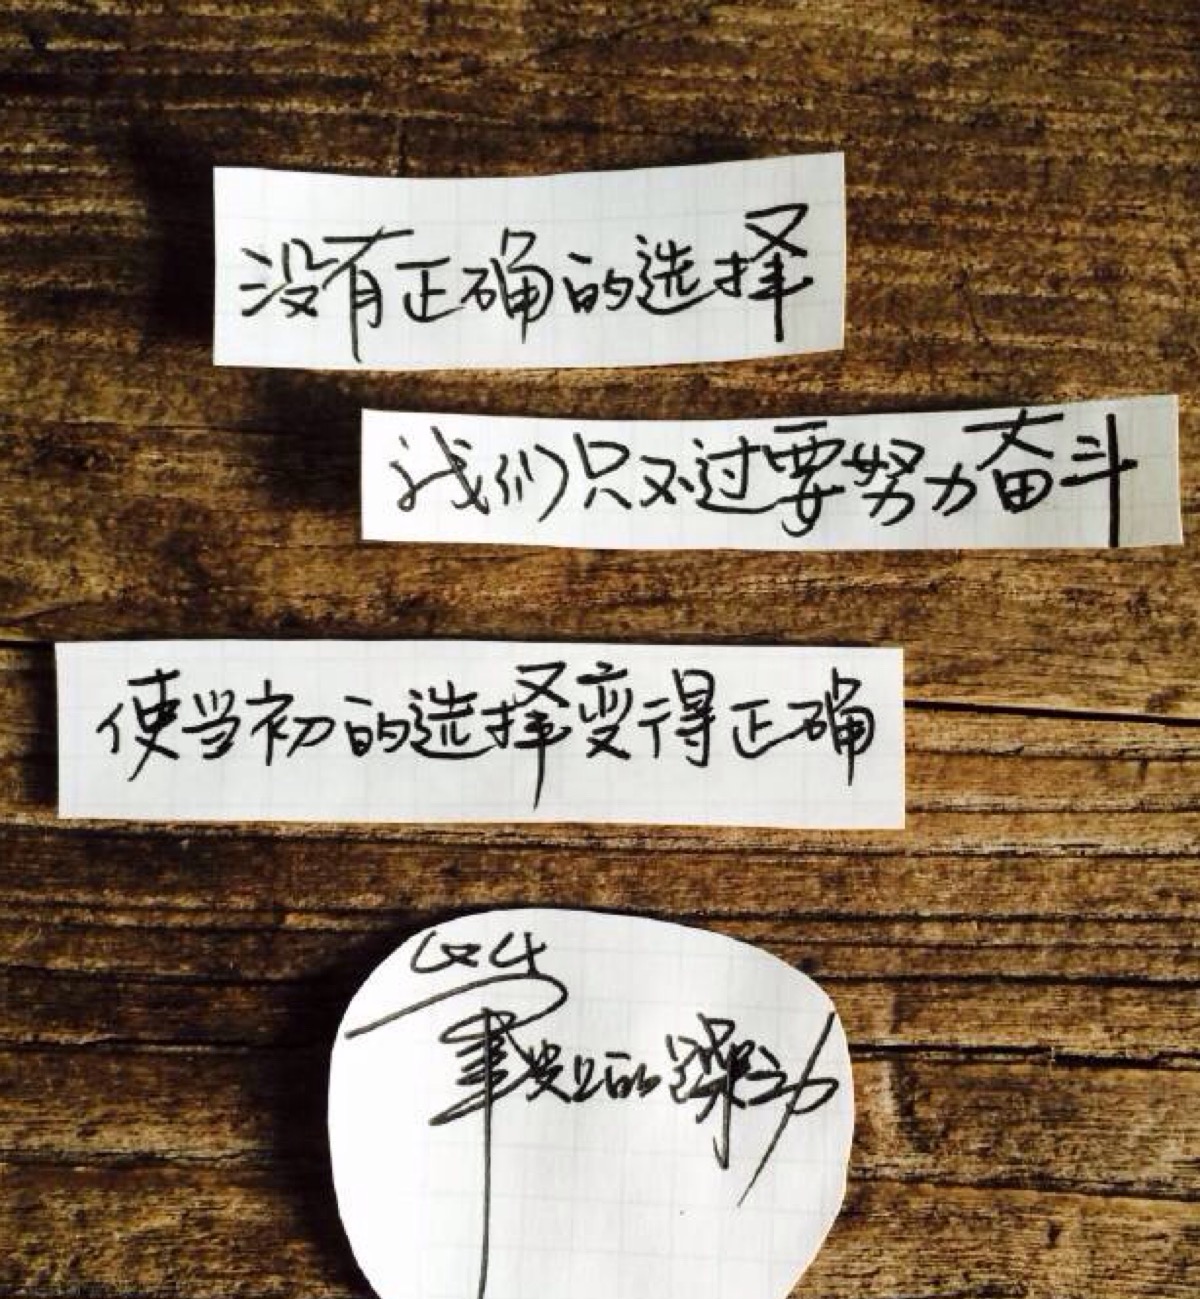 没有正确的选择
我们只不过要努力奋斗
使当初的选择变得正确
的躁动